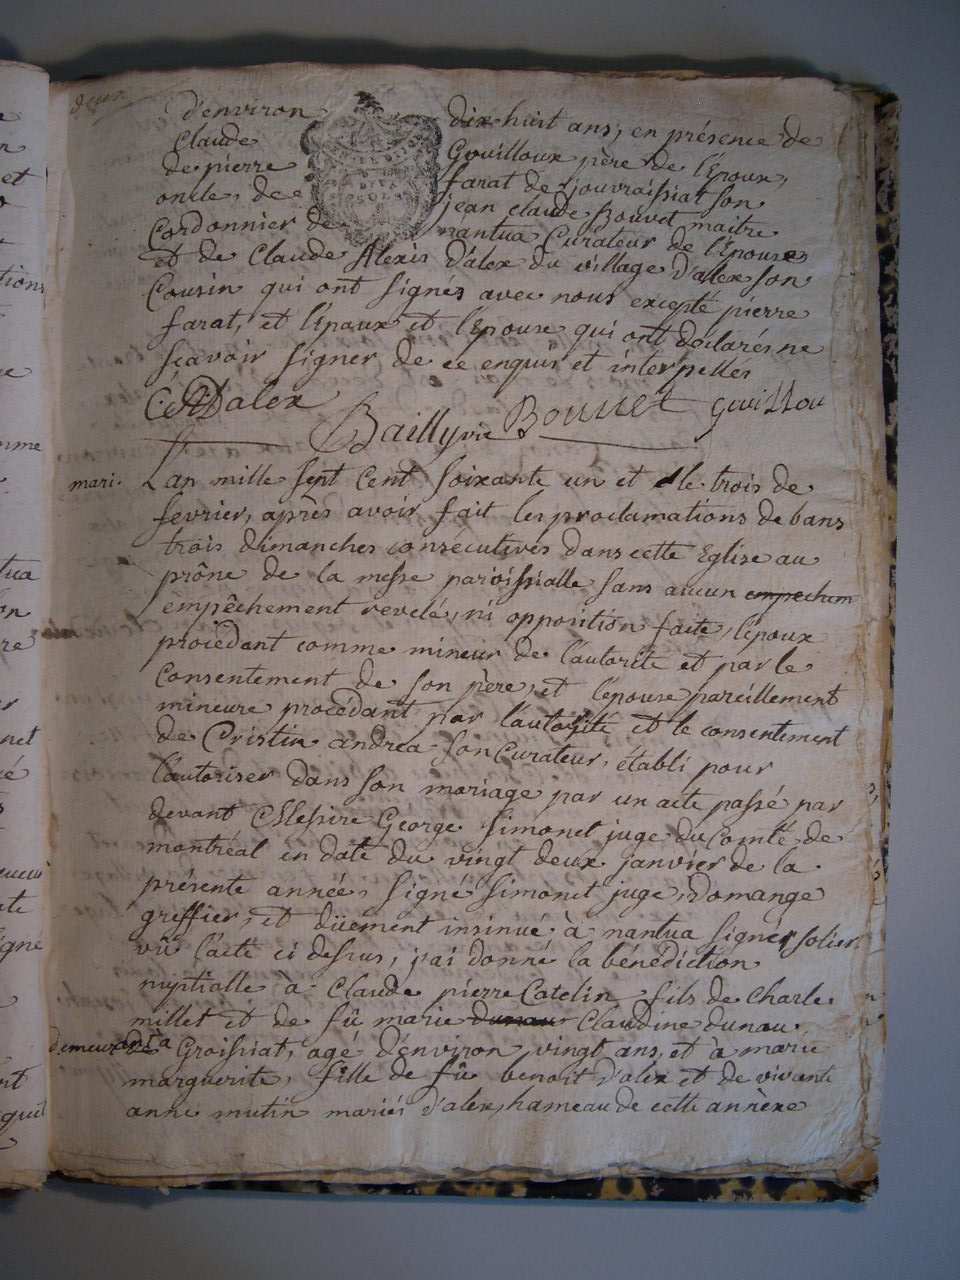 deux
d'environ dix huit ans, en présence de
Claude Gouilloux père de l'époux,
de pierre farat de jouvraissiat son
oncle, de jean claude Bouvet maitre
Cordonnier de nantua Curateur de l'épouse,
et de Claude Alexis d'alex du village d'alex son
Cousin qui ont signés avec nous excepté pierre
farat, et l'époux et l'épouse qui ont déclarés ne
scavoir signer de ce enquis et interpellés
D'alex Bailly vic Bouuet Gouillou
mari.
Lan mille sept cent soixante un et le trois de
fevrier, après avoir fait les proclamations de bans
trois dimanches consécutives dans cette Eglise au
prône de la messe paroissialle sans aucun empechem
empêchement revelé, ni opposition faite, l'époux
procédant comme mineur de l'autorité et par le
consentement de son père, et l'épouse pareillement
mineure procédant par l'autorité et le consentement
de Cristin andrea son Curateur, établi pour
l'autoriser dans son mariage par un acte passé par
devant Messire George Simonet juge du Comté de
montréal en daté du vingt deux janvier de la
présente année, signé Simonet juge, Domange
greffier, et düement insinué à nantua signer solier
vû l'acte ci dessus, j'ai donné la bénédiction
nuptialle à Claude pierre Catelin fils de Charle
millet et de fû marie dunau Claudine dunau
demeurant a Groissiat, agé d'environ vingt ans, et à marie
marguerite, fille de fû benoit d'alex et de vivante
anne mutin mariés d'alex, hameau de cette annèxe